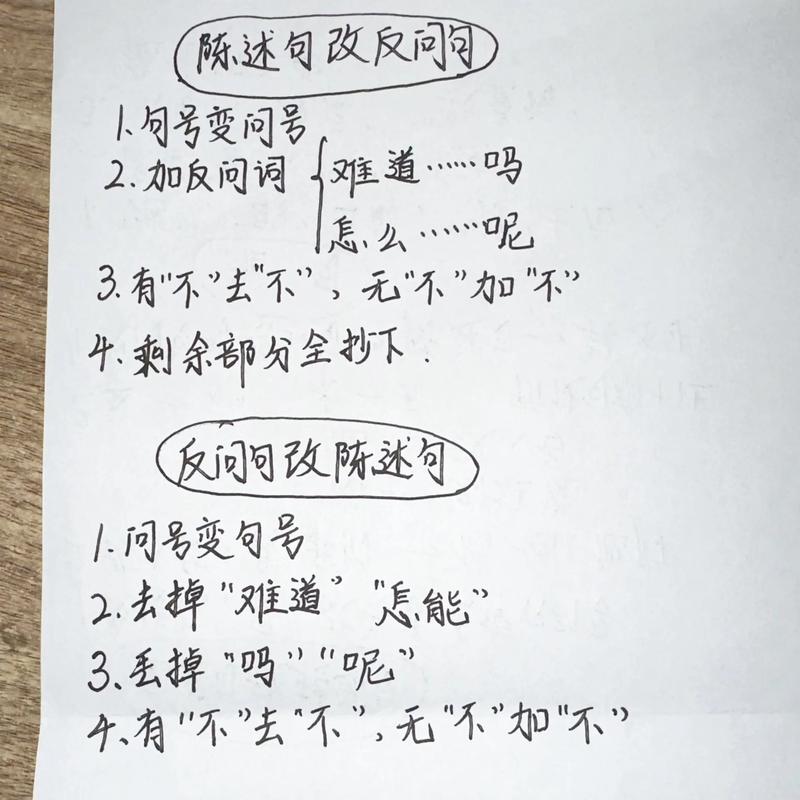 陈述句改反问句
1.句号变问号
2.加反问词 难道……吗
怎么……呢
3.有"不"去"不"，无"不"加"不"
4.剩余部分全抄下.
反问句改陈述句
1.问号变句号
2.去掉"难道""怎能"
3.丢掉"吗""呢"
4.有"不"去"不"，无"不"加"不"